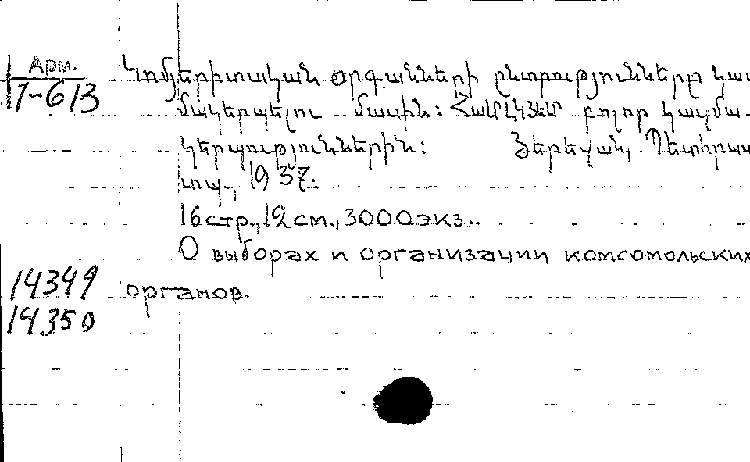 Арм.
7-613
Կոմյերիտական օրգանների ընտրությունները կազ
մակերպելու մասին: ՀամԼԿՅԵՄ բոլոր կազմա-
կերպություններին: Յերեվան, Պետհրատ
տպ., 1937.
16стр., 12см., 3000экз.
О выборах и организации комсомольских
органов.
14349
14350